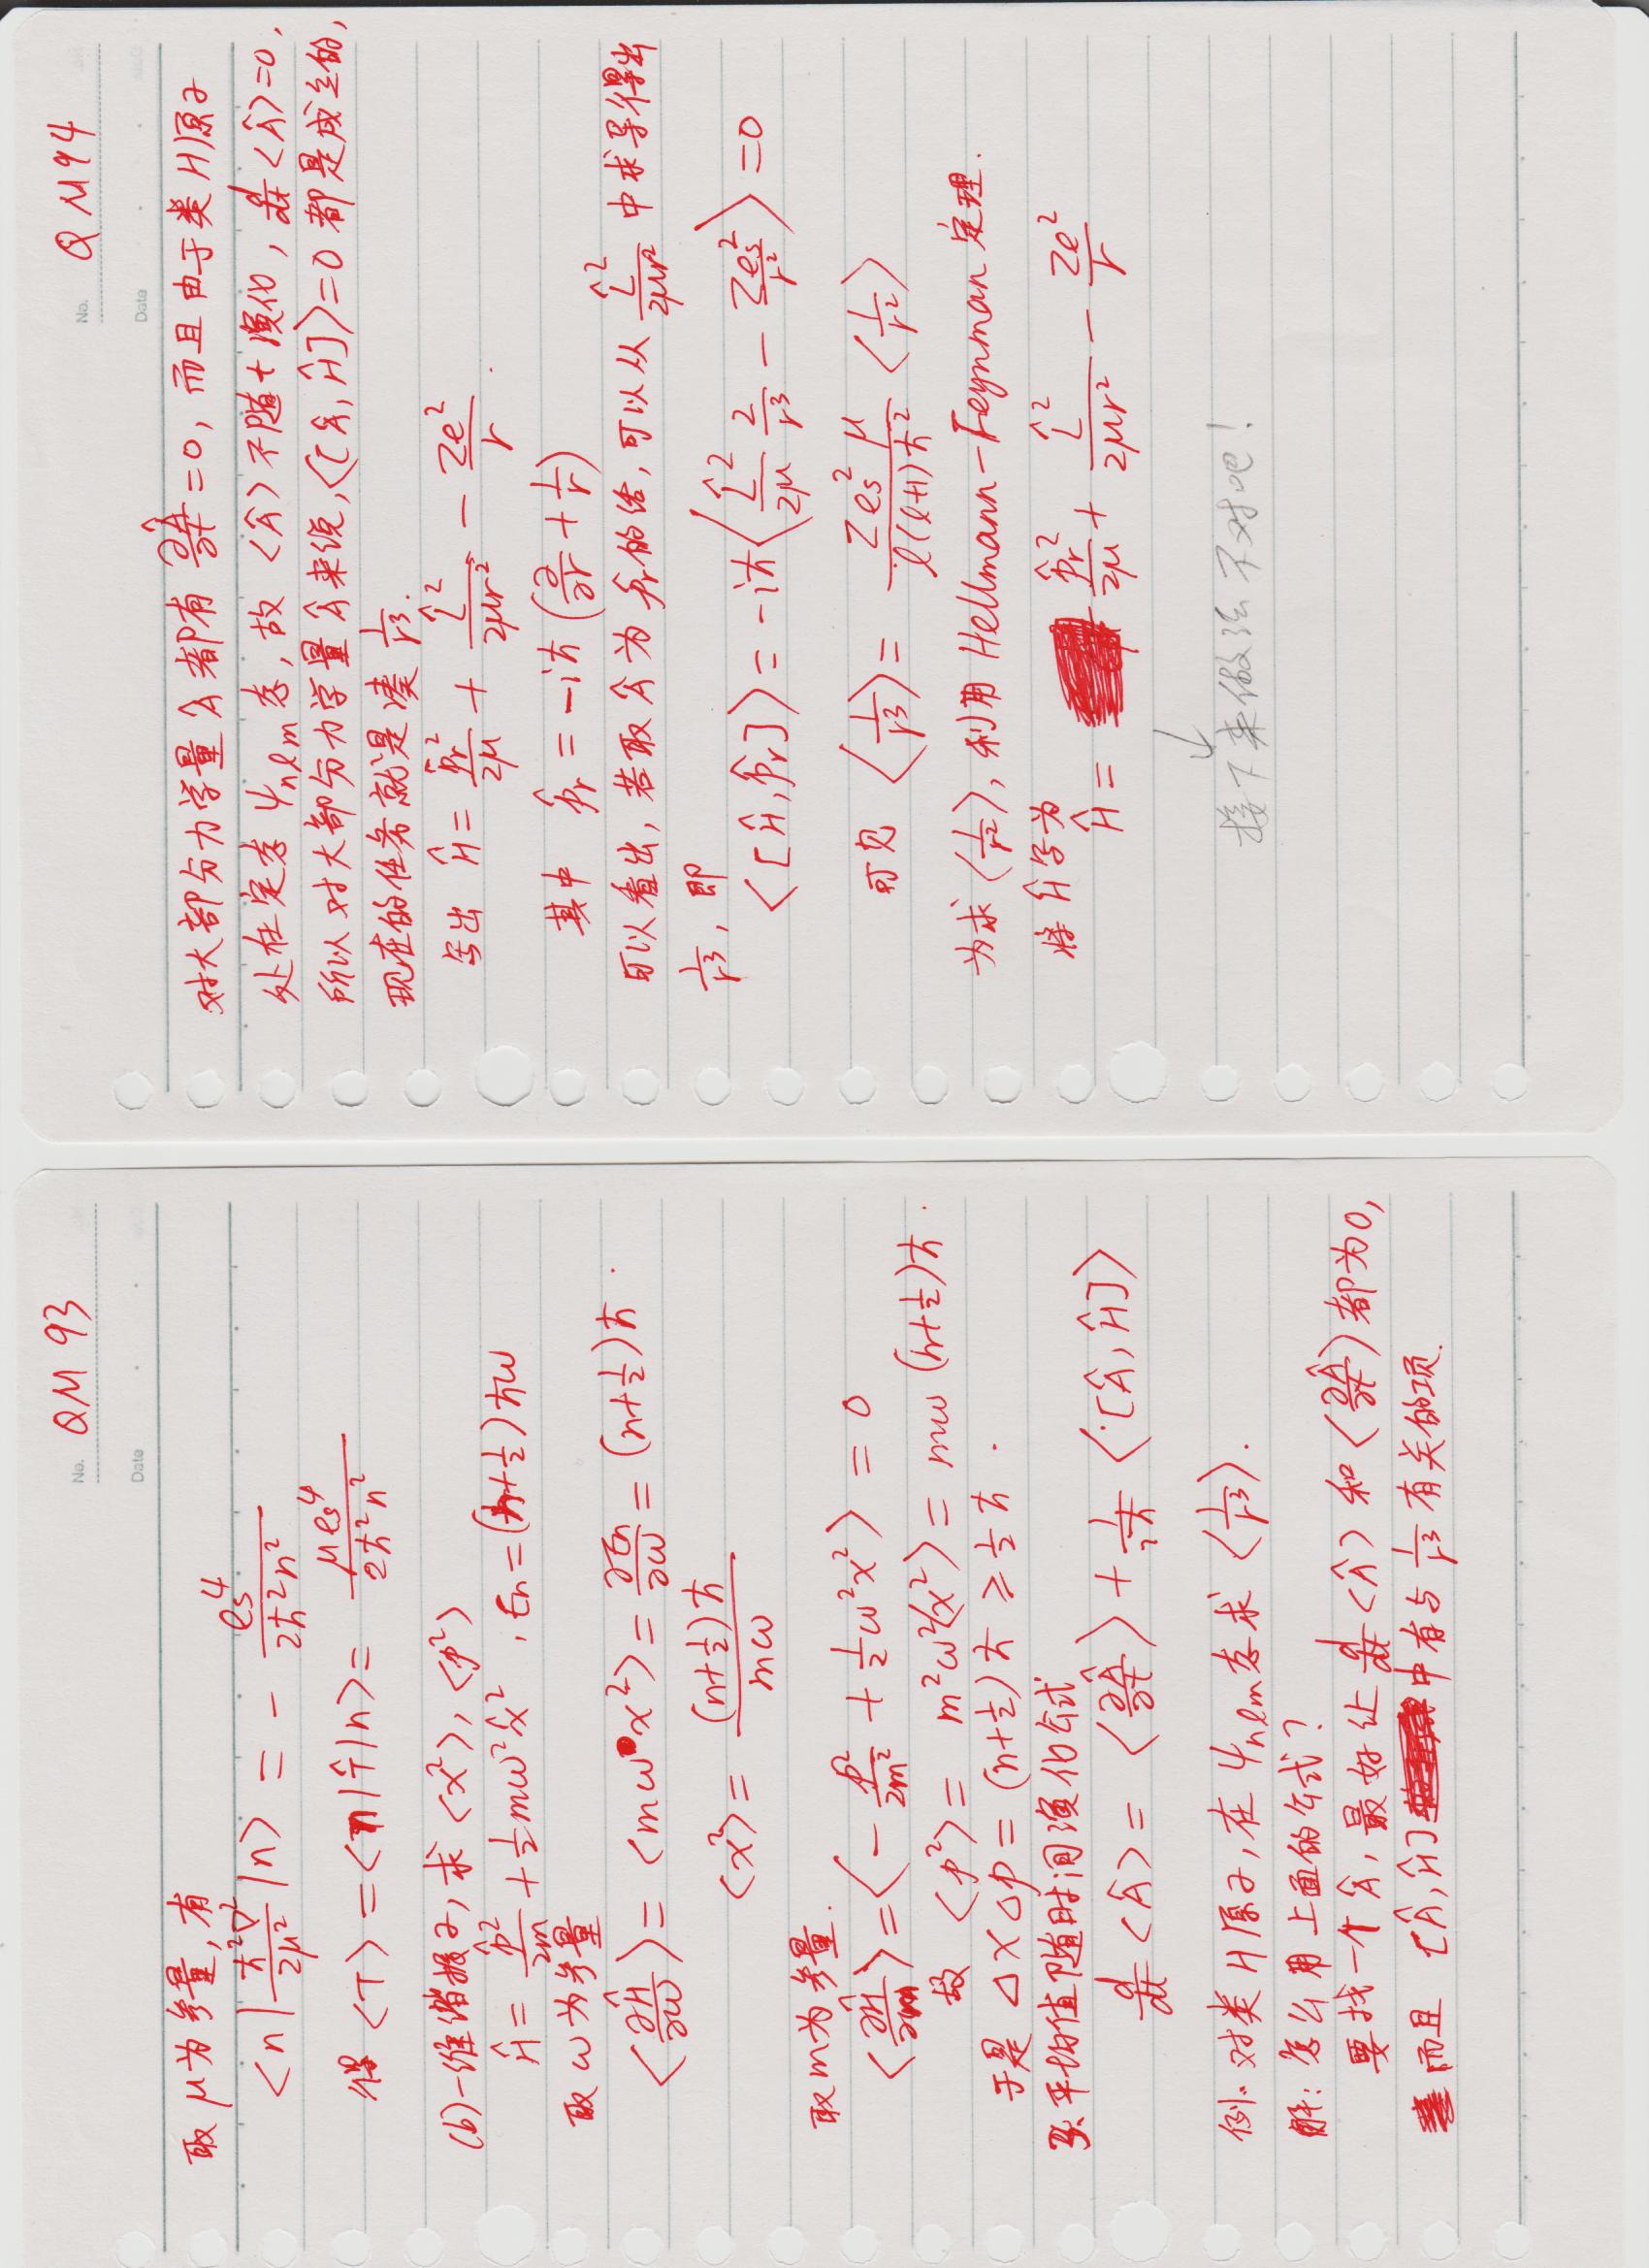 No. QM 93
Date
取 μ 为参量, 有
⟨n|ℏ²∇²/2μ²|n⟩ = - es⁴/2ℏ²n²
得 ⟨T⟩ = ⟨n|T̂|n⟩ = μes⁴/2ℏ²n²
(b) 一维谐振子, 求 ⟨x²⟩, ⟨p²⟩
Ĥ = p̂²/2m + ½mω²x̂², En = (n+½)ℏω
取 ω 为参量
⟨∂Ĥ/∂ω⟩ = ⟨mωx²⟩ = ∂En/∂ω = (n+½)ℏ.
⟨x²⟩ = (n+½)ℏ/mω
取 m 为参量.
⟨∂Ĥ/∂m⟩ = ⟨- p²/2m² + ½ω²x²⟩ = 0
故 ⟨p²⟩ = m²ω²⟨x²⟩ = mω(n+½)ℏ.
于是 ΔxΔp = (n+½)ℏ ≥ ½ℏ.
3. 平均值随时间演化公式
d/dt ⟨Â⟩ = ⟨∂Â/∂t⟩ + 1/iℏ ⟨[Â, Ĥ]⟩
例. 对类H原子, 在 ψnlm 态求 ⟨1/r³⟩.
解: 怎么用上面的公式?
要找一个 Â, 最好让 d/dt⟨Â⟩ 和 ⟨∂Â/∂t⟩ 都为0,
而且 [Â, Ĥ] 中有与 1/r³ 有关的项.
No. QM94
Date
对大部分力学量 Â 都有 ∂Â/∂t = 0, 而且由于类H原子
处在定态 ψnlm 态, 故 ⟨Â⟩ 不随 t 演化, d/dt⟨Â⟩ = 0,
所以对大部分力学量 Â 来说, ⟨[Â, Ĥ]⟩ = 0 都是成立的,
现在的任务就是凑 1/r³.
写出 Ĥ = p̂r²/2μ + L̂²/2μr² - Ze²/r.
其中 p̂r = -iℏ(∂/∂r + 1/r)
可以看出, 若取 Â 为 p̂r 的话, 可以从 L̂²/2μr² 中求导得出
1/r³, 即
⟨[Ĥ, p̂r]⟩ = -iℏ⟨L̂²/2μ 2/r³ - Zes²/r²⟩ = 0
可见 ⟨1/r³⟩ = Zes²μ/l(l+1)ℏ² ⟨1/r²⟩
为求 ⟨1/r²⟩, 利用 Hellmann-Feynman 定理.
将 Ĥ 写为
Ĥ = p̂r²/2μ + L̂²/2μr² - Ze²/r
↓
接下来做法不对吧!